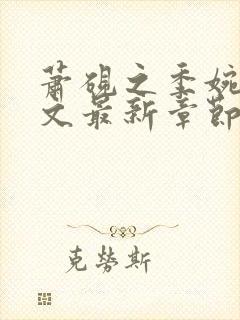 萧砚之季婉
文最新章节
克劳斯